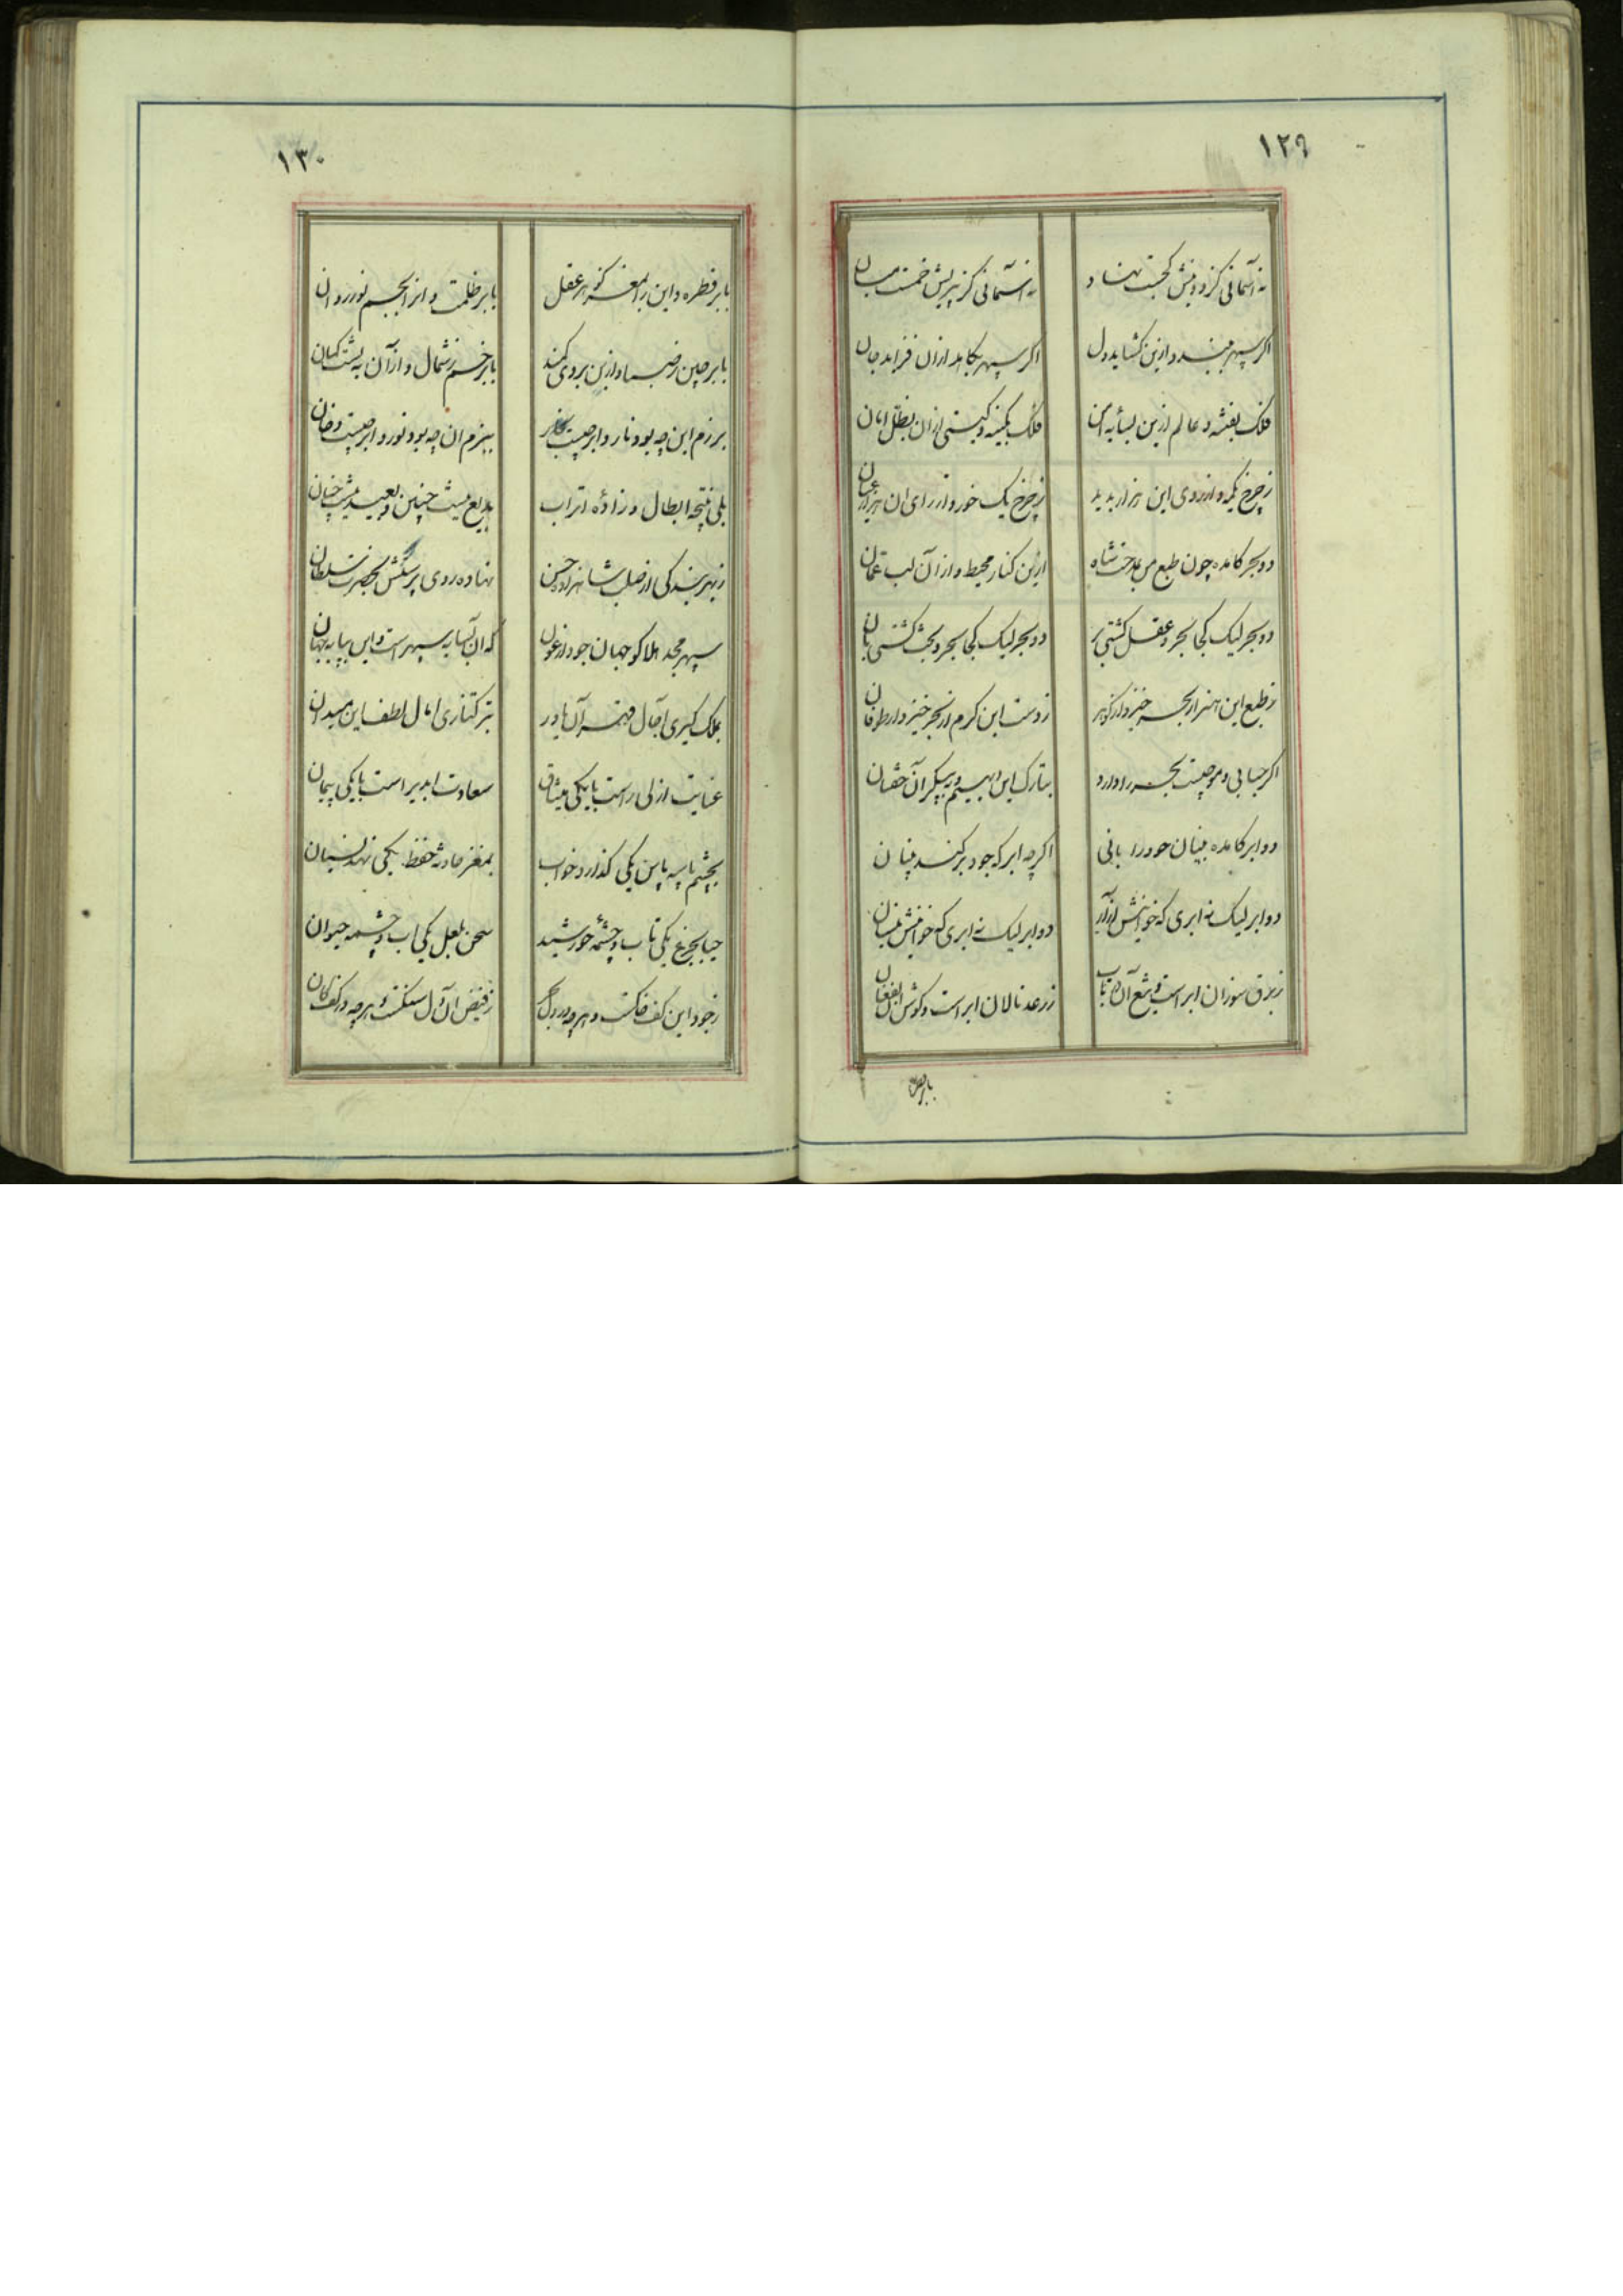 ۱۲۹
نه آسمانی کز دونیش کجست نهاد
نه آسمانی کز پریش خمست میان
اکر سپهر ببندد ازین کشاید دل
اکر سپهر بکاهد ازان فزاید جان
فلک بفتنه و عالم ازین بسایه امن
فلک بکینه و کیتی ازان بظل امان
ز چرخ یکمه و از روی این هزار بدید
ز چرخ یک خور و از رای ان هزار عیان
دو بحر کامده چون طبع من بمدحت شاه
ازین کنار محیط و ازآن لب عمان
دو بحر لیک کجا بحر و عقل کشتی بر
دو بحر لیک کجا بحر و بخت کشتی بان
ز طبع این هنر از بحر خیزد ار کوهر
ز دست این کرم از بحر خیزد ار طوفان
اکر حبابی و موجیست بحر را دارد
بتارک این دیهیم و به پیکر آن خفتان
دو ابر کامده بینان جود را بانی
اکرچه ابر که جود برکند بنیان
دو ابر لیک نه ابری که خوانیش آزار
دو ابر لیک نه ابری که خوانیش نیسان
ز برق سوزان ابر است و تیغ آن در تاب
ز رعد نالان ابر است و کوس این بفغان
بابر قطره
۱۳۰
بابر قطره و این را بمغز کوهر عقل
بابر ظلمت و انرا بجسم نور روان
بابر چین ز صبا و ازین بروی کمند
بابر خم ز شمال و ازآن به پشت کمان
برزم این چه بود نار و ابر چیست بخار
ببزم ان چه بود نور و ابر چیست دخان
بلی نتیجه ابطال و زادهٔ اتراب
بدیع نیست چنین و بعید نیست چنان
ز بهر بندکی از صلب شاهزاده حسن
نهاده روی پرستش بحضرت سلطان
سپهر مجد هلاکو جهان جود ارغون
که ان بسایه سپهر است و این بپایه جهان
بملک کیری اجال قهر آن یاور
بترکتازی امال لطف این میدان
عنایت ازلی راست با یکی میثاق
سعادت ابدیر است با یکی پیمان
بچشم پاسبه پاس یکی کذارد خواب
بمغز حادثه حفظ یکی نهد نسیان
حیا بچرخ یکی تاب و چشمهٔ خورشید
سخن بلعل یکی اب و چشمه حیوان
ز جود این کف خاکست و هرچه در دل بحر
ز فیض ان دل سنکست و هرچه در کف کان